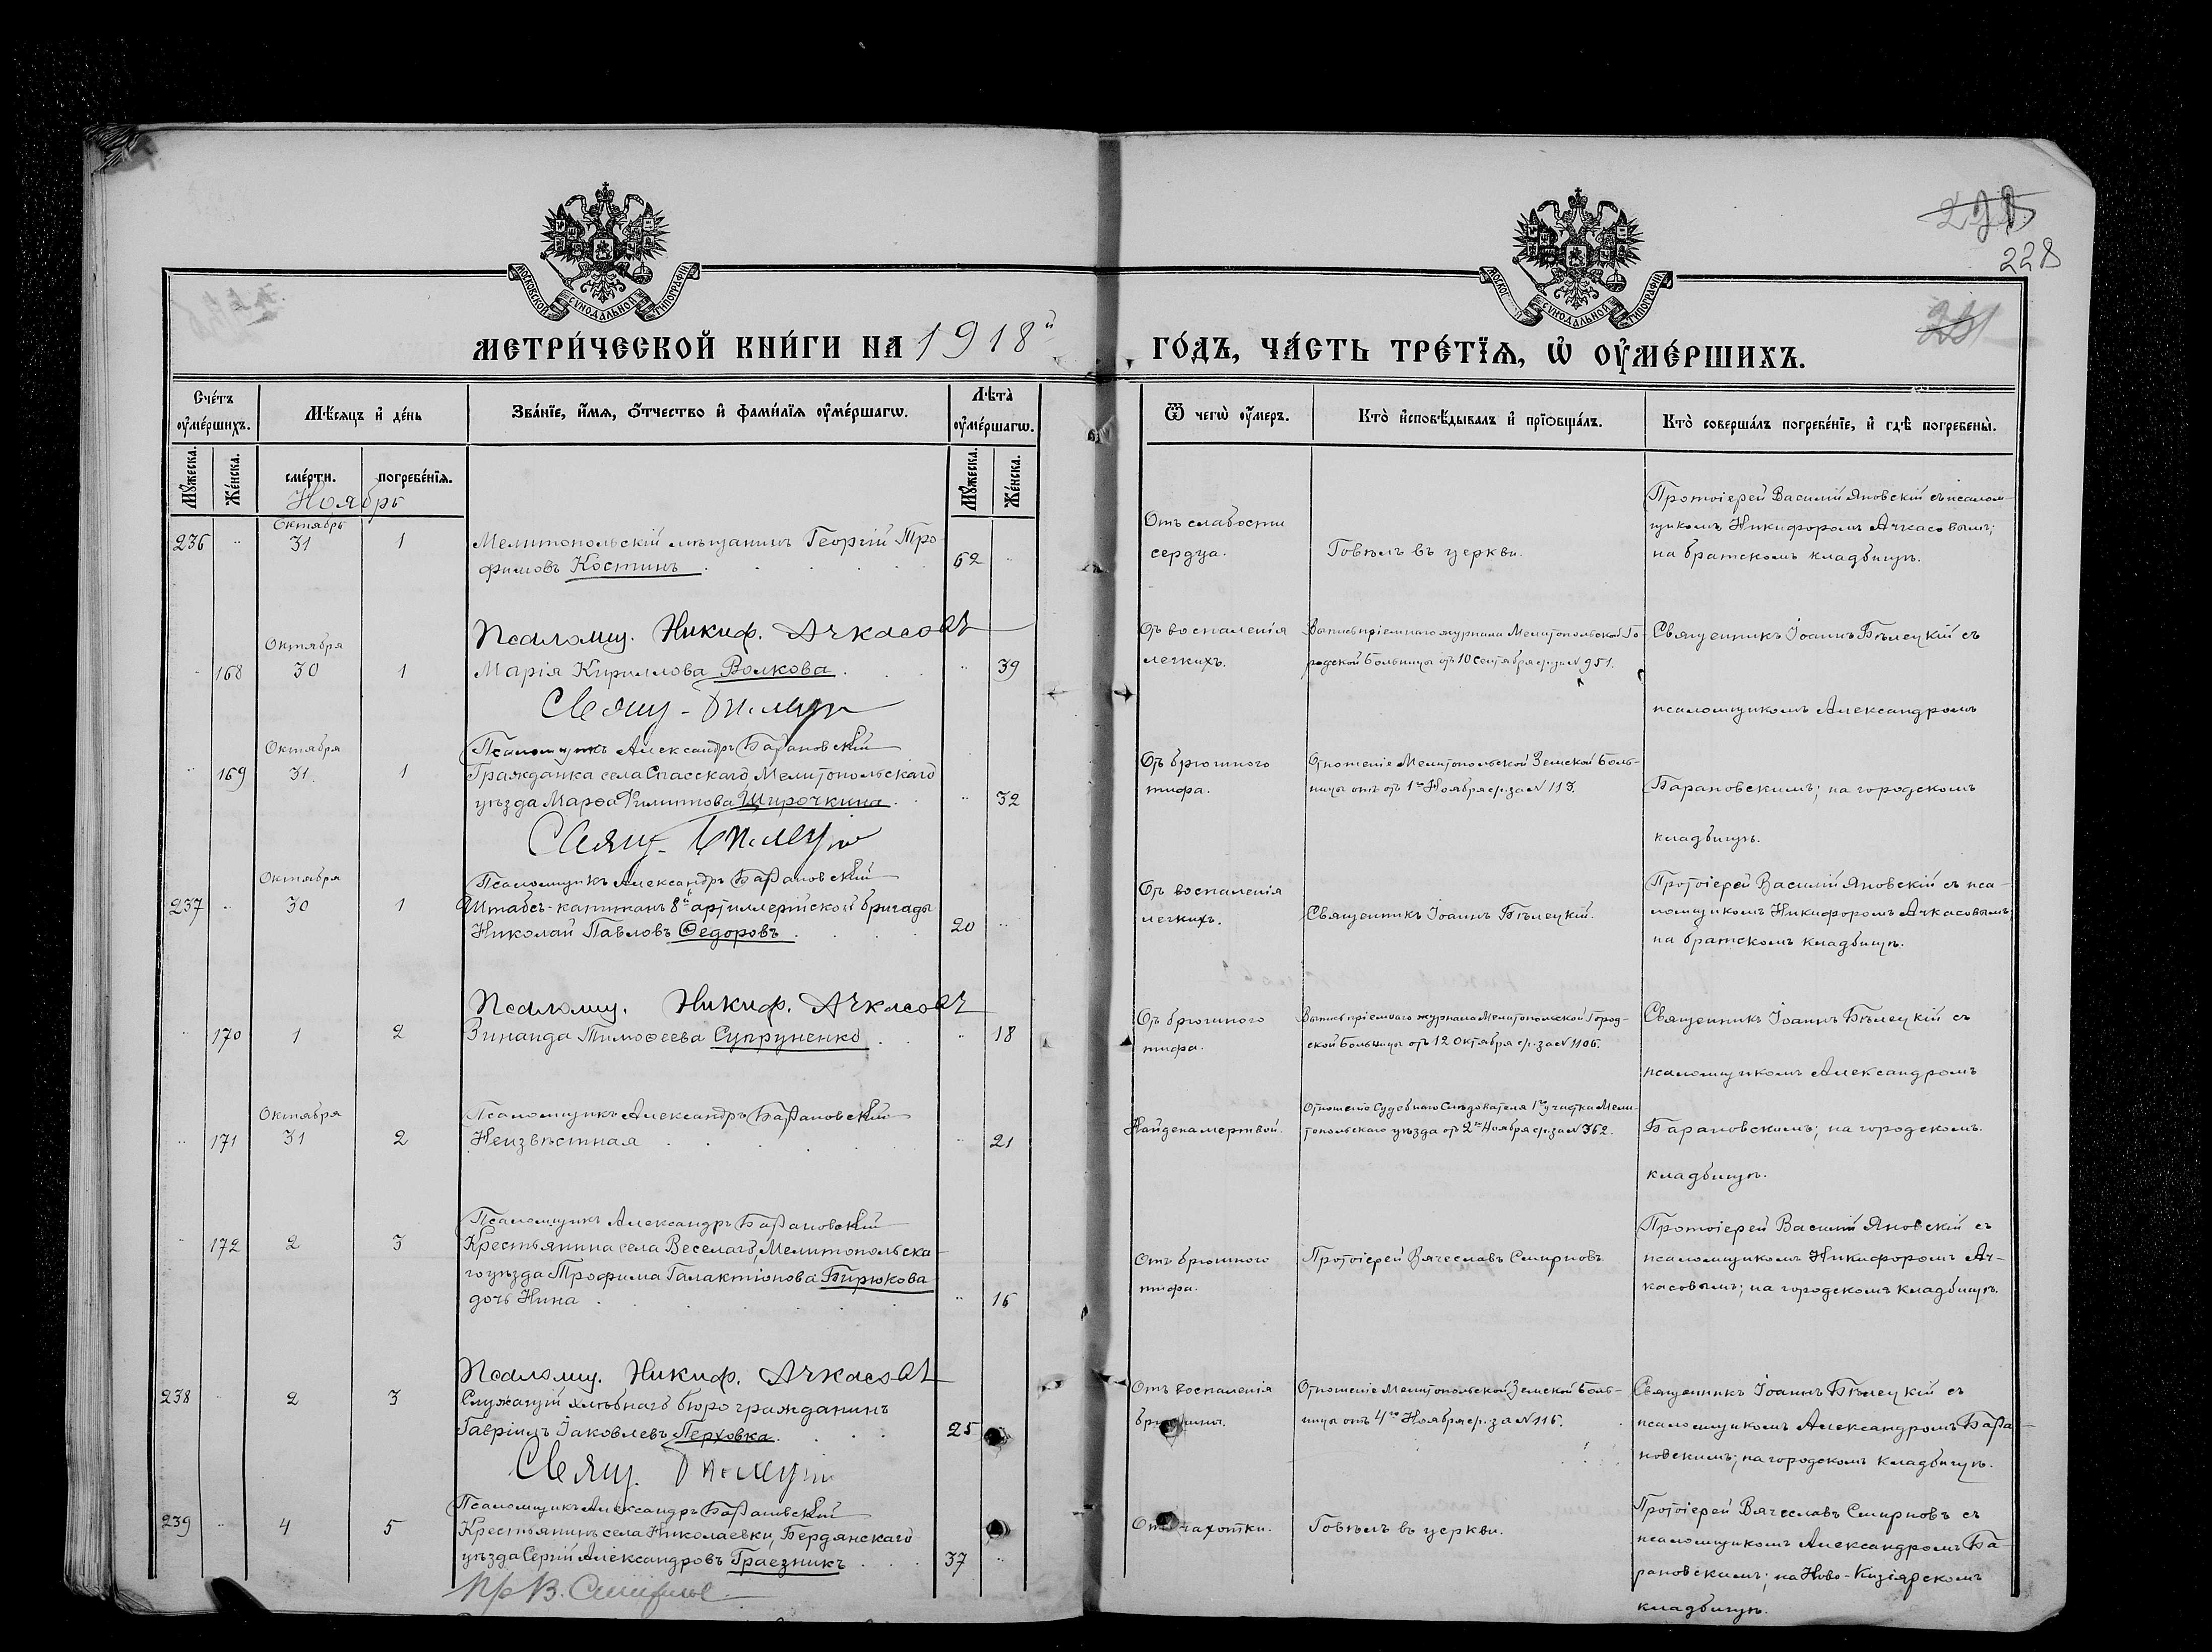 228
МОСКОВСКОЙ СѴНОДАЛЬНОЙ ТИПОГРАФІИ
СѴНОДАЛЬНОЙ ТИПОГРАФІИ
МЕТРИ́ЧЕСКОЙ КНИ́ГИ НА 1918й ГО́ДЪ, ЧА́СТЬ ТРЕ́ТЇѦ, Ѡ҆ ОУ҆МЕ́РШИХЪ.
Сче́тъ оу҆ме́ршихъ.
Мѣ́сяцъ и҆ де́нь
Зва́нїе, и҆́мѧ, ѻ҆́тчество и҆ фами́лїѧ оу҆ме́ршагѡ.
Лѣ́та̀ оу҆ме́ршагѡ.
Ѿ чегѡ̀ оу҆́меръ.
Кто̀ и҆сповѣ́дывалъ и҆ прїѻбща́лъ.
Кто̀ соверша́лъ погребе́нїе, и҆ гдѣ̀ погребены̀.
Мꙋ́жеска.
Же́нска.
сме́рти.
погребе́нїѧ.
Мꙋ́жеска.
Же́нска.
Ноябрь
Октябрь
236 " 31 1
Мелитопольскій мѣщанинъ Георгій Тро-
фимовъ Костинъ
62 "
Отъ слабости
сердца.
Говѣлъ въ церкви.
Протоіерей Василій Яновскій съ псалом-
щикомъ Никифоромъ Ачкасовымъ;
на братскомъ кладбищѣ.
Псаломщ. Никиф. Ачкасовъ
Октября
" 168 30 1
Марія Кириллова Волкова
" 39
Отъ воспаленія
легкихъ.
Выпись пріемнаго журнала Мелитопольской Го-
родской Больницы отъ 10 сентября с/г. за № 951.
Священникъ Іоаннъ Бѣлецкій съ
псаломщикомъ Александромъ
Барановскимъ; на городскомъ
кладбищѣ.
Свящ.
Псаломщикъ Александръ Барановскій
Октября
" 169 31 1
Гражданка села Спасскаго Мелитопольскаго
уѣзда Марѳа Филиппова Широчкина
" 32
Отъ брюшного
тифа.
Отношеніе Мелитопольской Земской Боль-
ницы отъ 1го Ноября с/г. за № 113.
Свящ.
Псаломщикъ Александръ Барановскій
Октября
237 " 30 1
Штабсъ-капитанъ 8й артиллерійской бригады
Николай Павловъ Ѳедоровъ
20 "
Отъ воспаленія
легкихъ.
Священникъ Іоаннъ Бѣлецкій.
Протоіерей Василій Яновскій съ пса-
ломщикомъ Никифоромъ Ачкасовымъ
на братскомъ кладбищѣ.
Псаломщ. Никиф. Ачкасовъ
" 170 1 2
Зинаида Тимоѳеева Супруненко
" 18
Отъ брюшного
тифа.
Выпись пріемнаго журнала Мелитопольской Город-
ской Больницы отъ 12 Октября с/г. за № 1106.
Священникъ Іоаннъ Бѣлецкій съ
псаломщикомъ Александромъ
Барановскимъ; на городскомъ
кладбищѣ.
Псаломщикъ Александръ Барановскій
Октября
" 171 31 2
Неизвѣстная
" 21
Найдена мертвой.
Отношеніе Судебнаго Слѣдователя 1го участка Мели-
топольскаго уѣзда отъ 2го Ноября с/г. за № 362.
Псаломщикъ Александръ Барановскій
" 172 2 3
Крестьянина села Веселаго, Мелитопольска-
го уѣзда Трофима Галактіонова Бирюкова
дочь Нина
" 16
Отъ брюшного
тифа.
Протоіерей Вячеславъ Смирновъ
Протоіерей Василій Яновскій съ
псаломщикомъ Никифоромъ Ач-
касовымъ; на городскомъ кладбищѣ.
Псаломщ. Никиф. Ачкасовъ
238 " 2 3
Служащій хлѣбнаго бюро гражданинъ
Гавріилъ Іаковлевъ Перховка
25
Отъ воспаленія
Отношеніе Мелитопольской Земской Боль-
ницы отъ 4го Ноября с/г. за № 116.
Священникъ Іоаннъ Бѣлецкій съ
псаломщикомъ Александромъ Бара-
новскимъ; на городскомъ кладбищѣ.
Свящ.
Псаломщикъ Александръ Барановскій
239 " 4 5
Крестьянинъ села Николаевки, Бердянскаго
уѣзда Сергій Александровъ Граезникъ
37 "
Отъ чахотки.
Говѣлъ въ церкви.
Протоіерей Вячеславъ Смирновъ съ
псаломщикомъ Александромъ Ба-
рановскимъ; на Ново-Кизіярскомъ
кладбищѣ.
Пр. В. Смирновъ